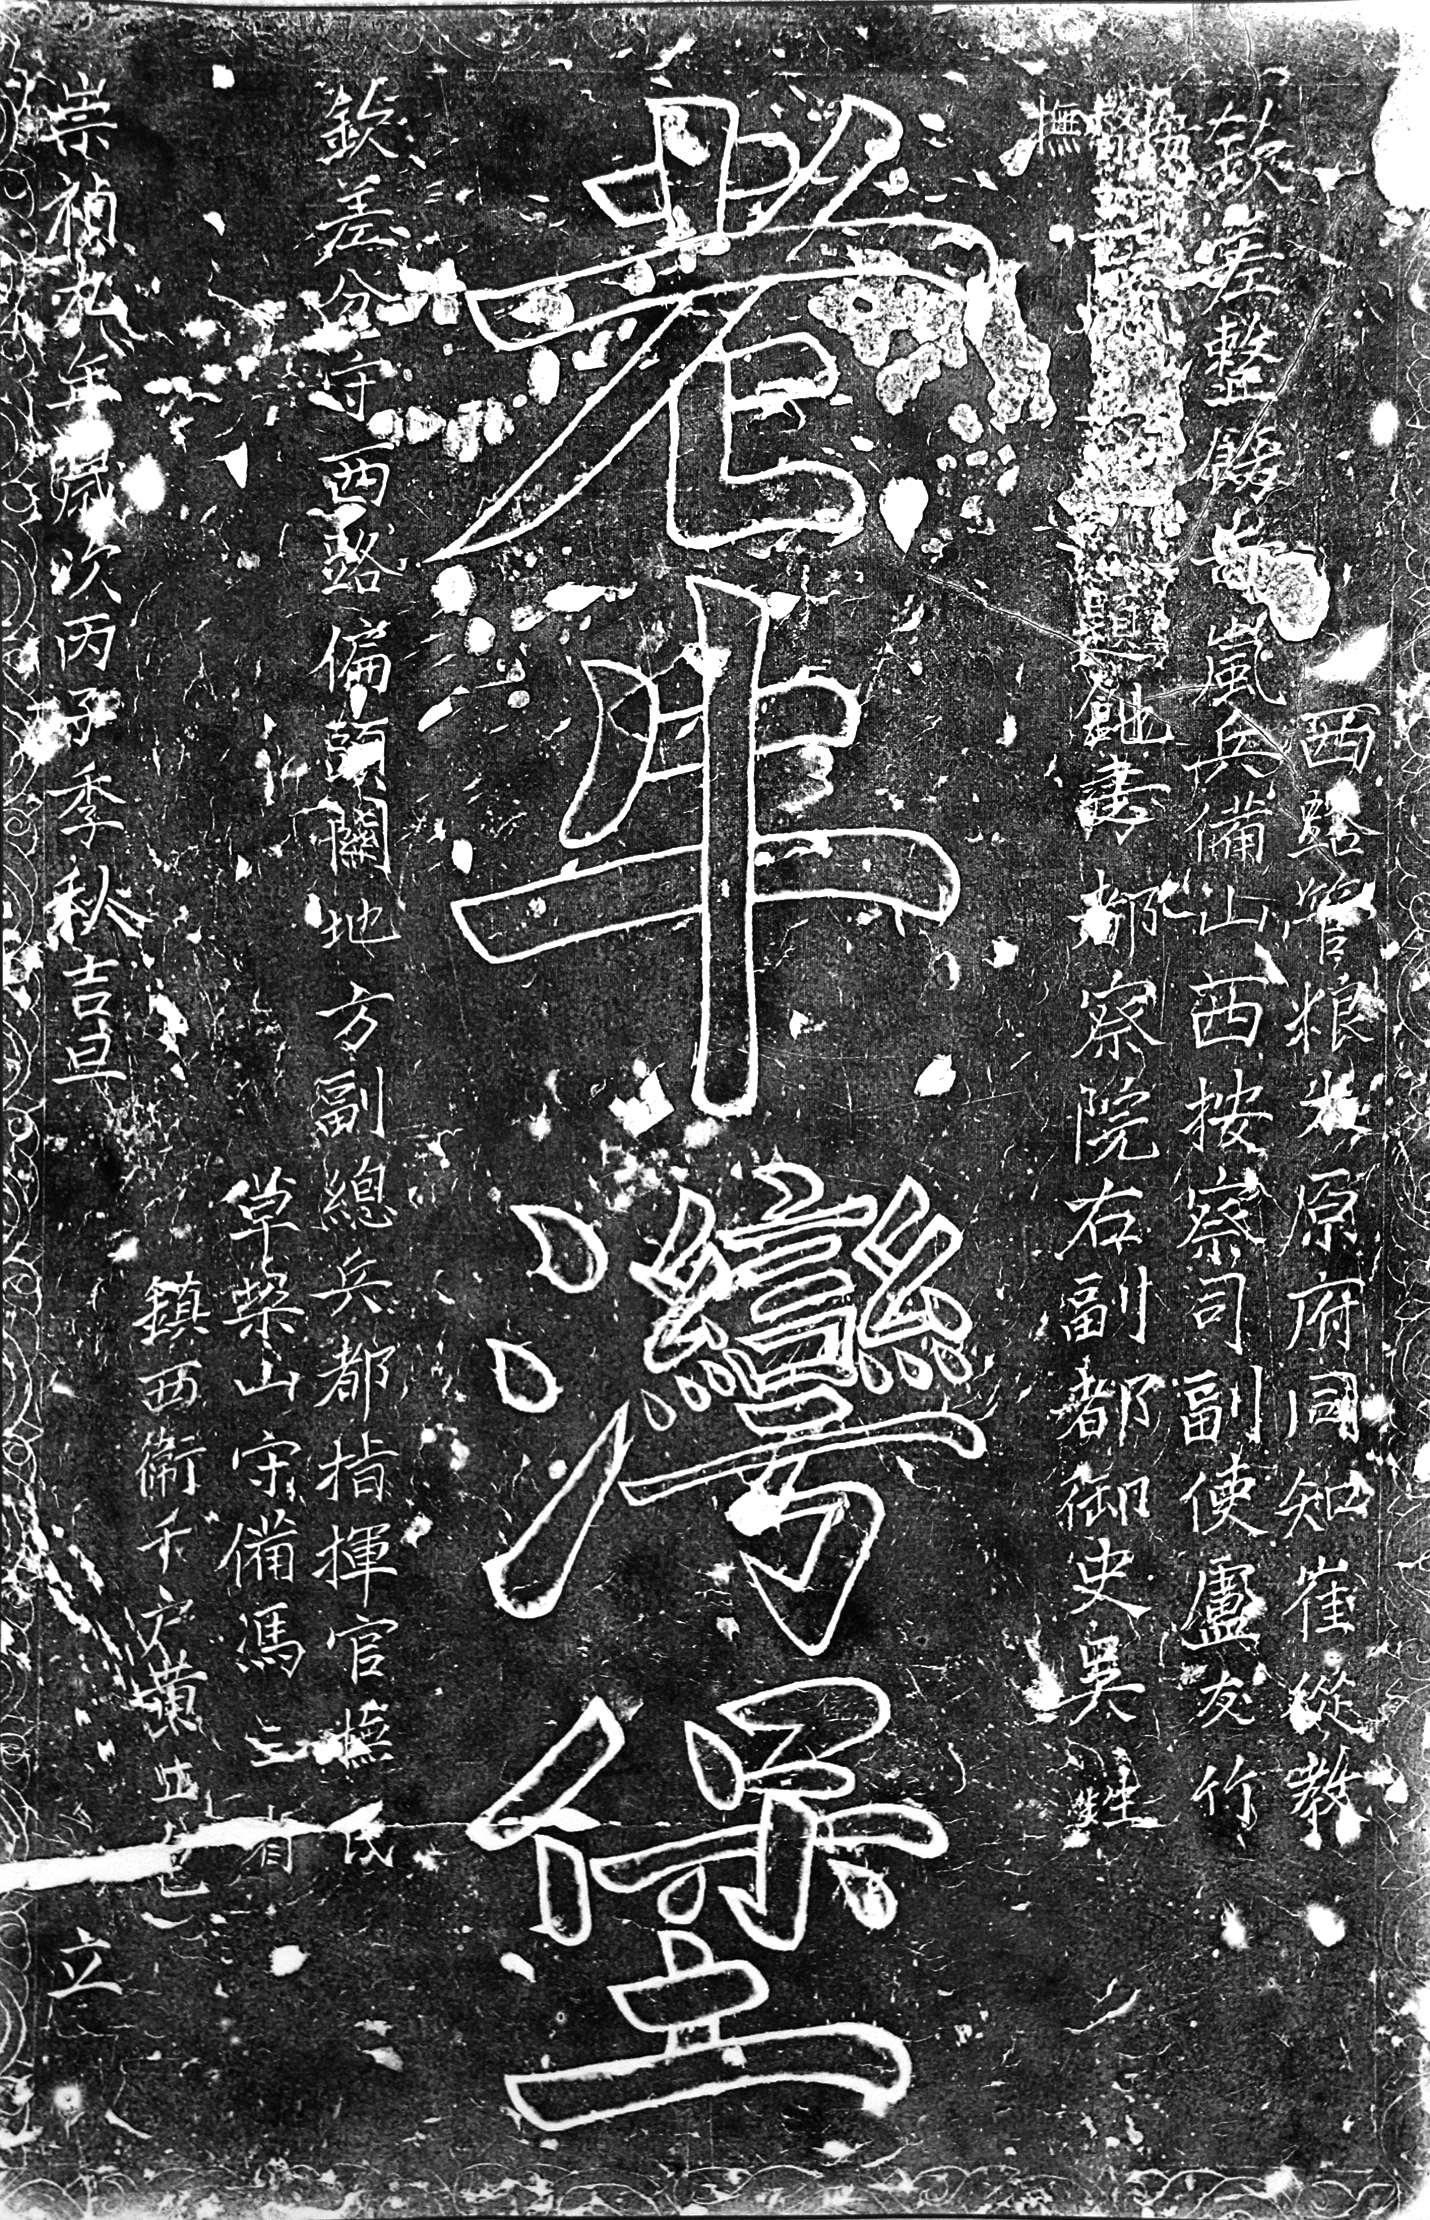 西路管粮太原府同知崔從教
欽差整飭岢嵐兵備山西按察司副使盧友竹
撫 勅書都察院右副都御史吳甡
老牛灣堡
欽差分守西路偏頭關地方副總兵都指揮官撫民
草垛山守備馮三省
鎮西衛千户黄
崇禎九年歲次丙子季秋吉旦 立